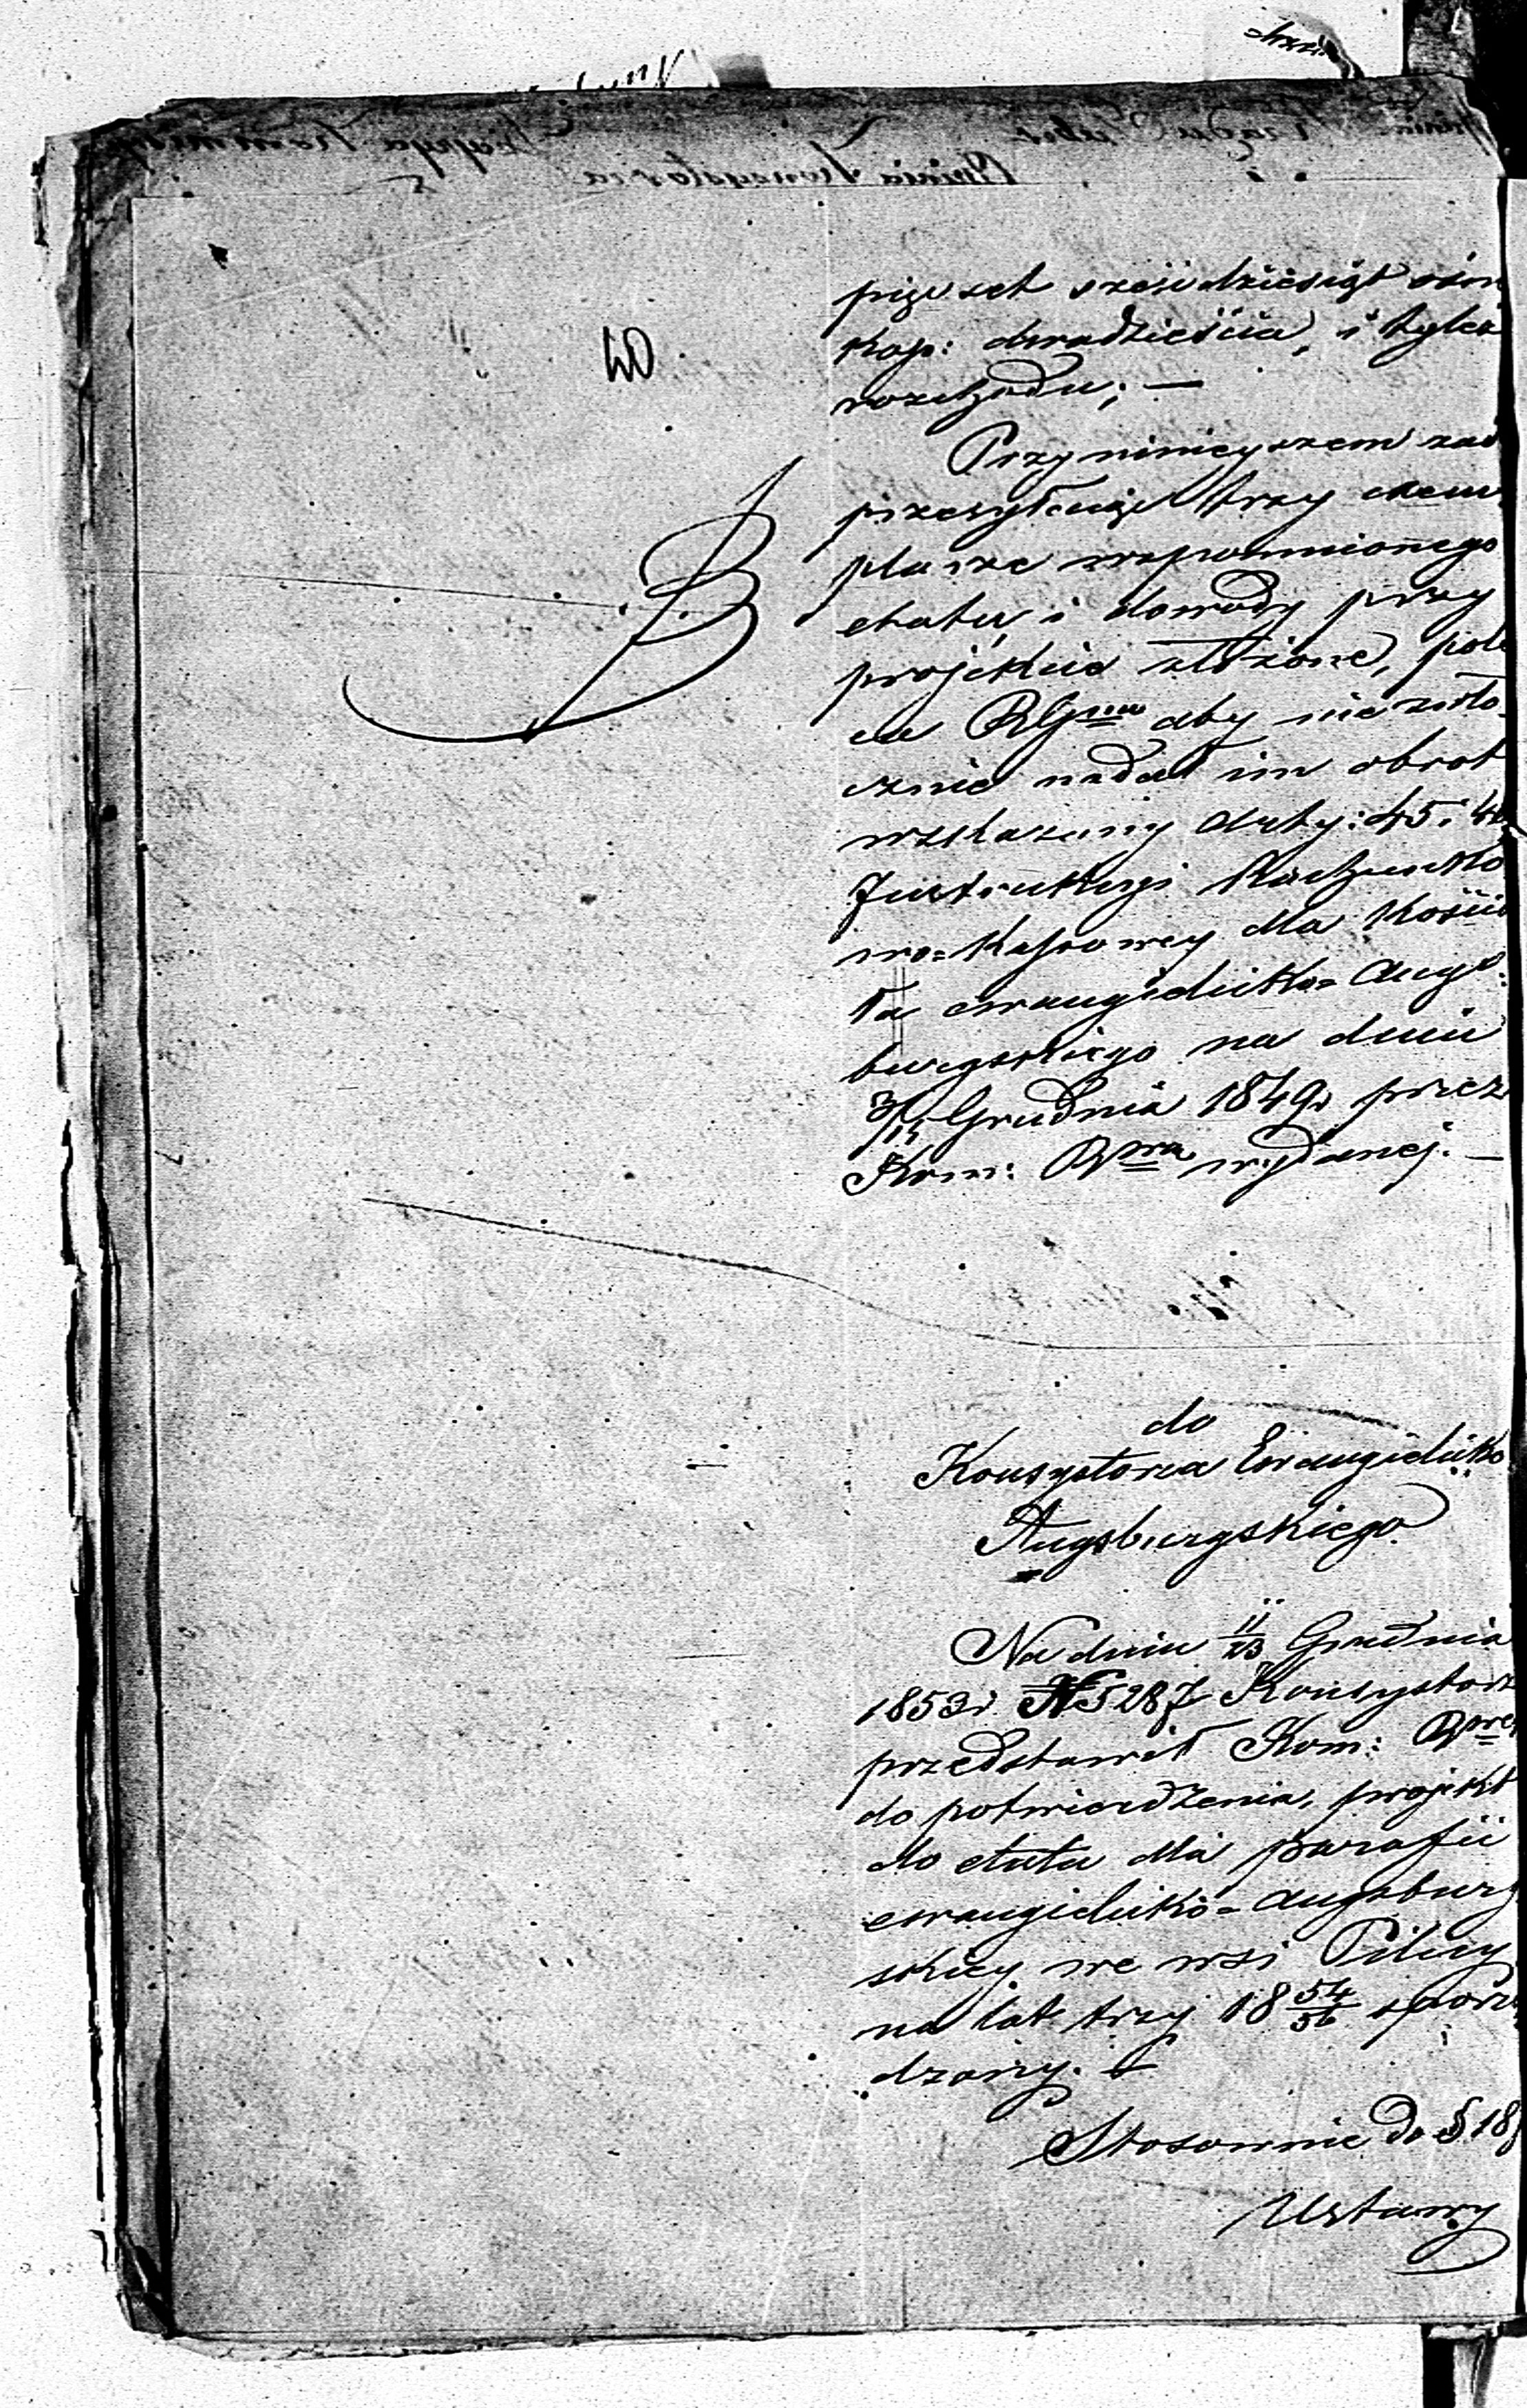 pięset sześćdziesiąt ośm
kop: dwadzieścia, i tyleż
rozchodu; —
Przy niniejszem zaś
przesyłając trzy exem
plarze wspomnionego
etatu i dowody przy
projekcie złożone, pole
ca RGnu aby niezwło-
cznie nadał im obrot
wskazany Arty: 45 i 46
Instrukcyi Rachunko
wo=Kassowey dla Kościo
ła ewangielicko= Augs:
burgskiego na dniu
3/15 Grudnia 1849r przez
Kom: Rwą wydanej. —
do
Konsystorza Ewangielicko
Augsburgskiego
Na dniu 11/23 Grudnia
1853r N 5287 Konsystorz
przedstawił Kom: Rwej
do potwierdzenia, projekt
do etatu dla parafii
ewangielicko=augsburg
skiey we wsi Pilicy
na lat trzy 18 54/56 sporzą
dzony. —
Stosownie do § 18
Ustawy